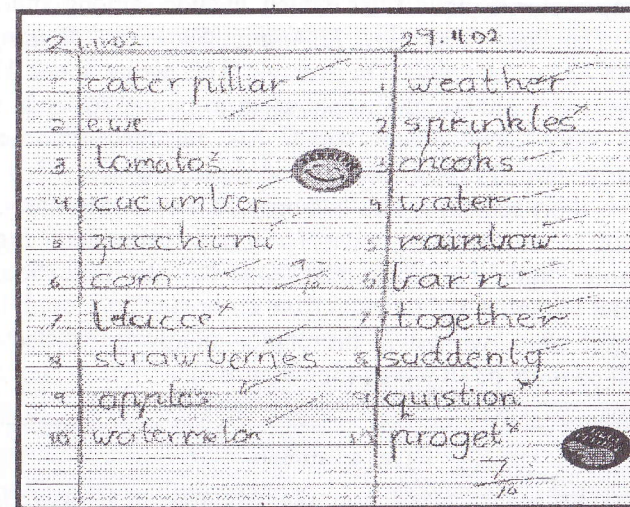 21.11.02
1 caterpillar
2 ewe
3 tomatos
4 cucumber
5 zucchini
6 corn
7
8 strawberries
9 apples
10 watermelon
9/10
29.11.02
1 weather
2 sprinkles
3 chooks
4 water
5 rainbow
6 barn
7 together
8 suddenly
9 quistion
10 proget
7/10